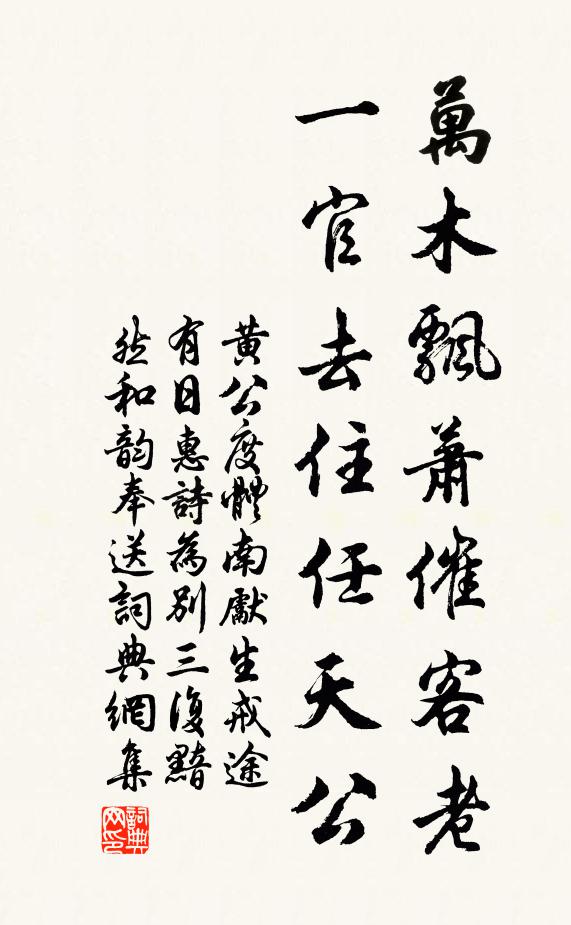 萬木飄蕭催客老
一官去住任天公
黃公度體南獻生戒途
有日惠詩為別三復黯
然和韵奉送詞典網集
詞典网印